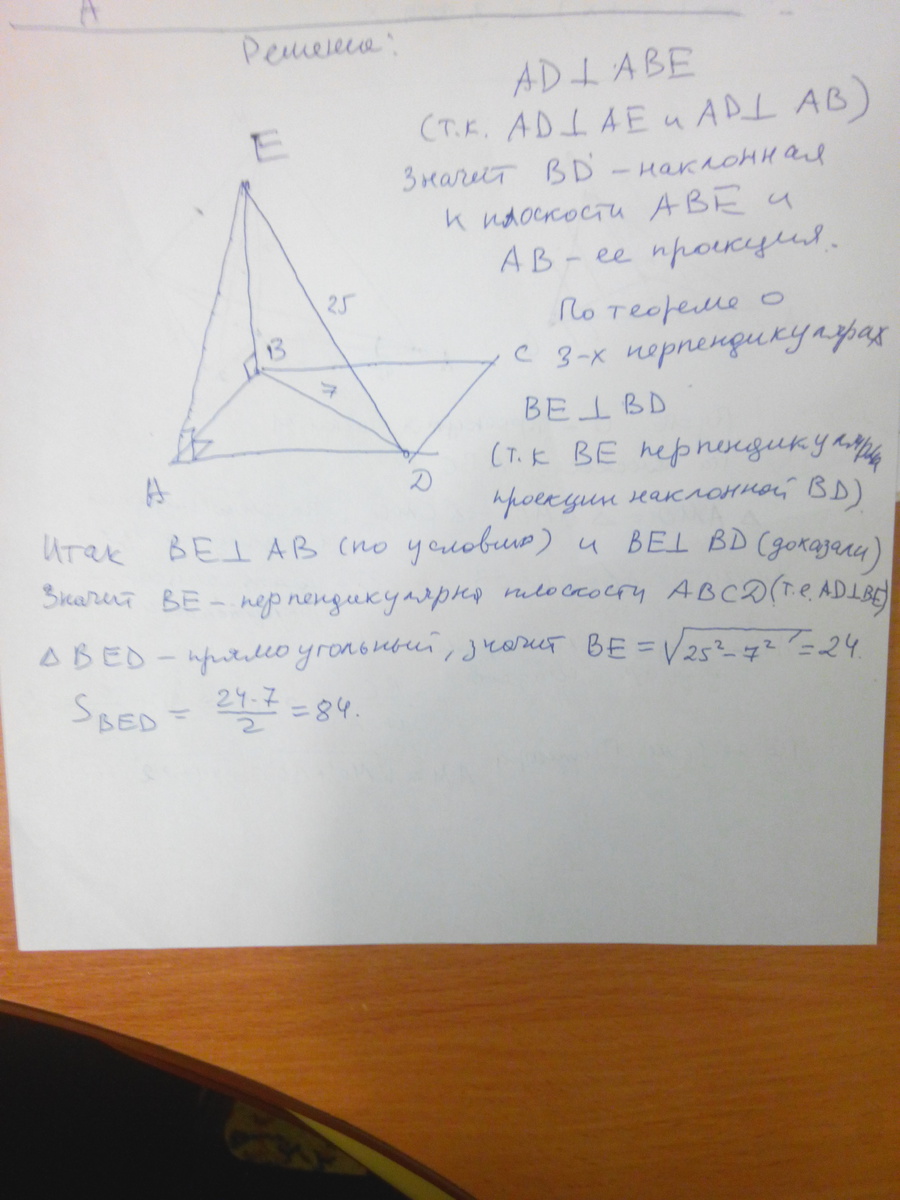 A
Решение:
AD⊥ ABE
(т.к. AD⊥AE и AD⊥ AB)
Значит BD – наклонная
к плоскости ABE и
AB – ее проекция.
По теореме о
3-х перпендикулярах
BE⊥BD
(т.к BE перпендикулярна
проекции наклонной BD)
E
25
B
C
7
A
D
Итак BE⊥AB (по условию) и BE⊥ BD (доказали)
Значит BE – перпендикулярна плоскости ABCD (т.е. AD⊥BE)
△BED – прямоугольный, значит BE = √25²–7² = 24.
S BED = 24·7/2 = 84.